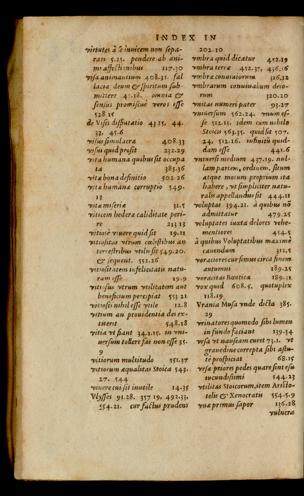 INDEX IN
virtutes à se inuicem non sepa-
rari 5.25. pendere ab ani-
mi affectionibus 117.30
visa animantium 408.31. fal
lacia deum & spiritum sub-
mittere 41.18. omnia &
sensus promiscuè veros esse
528.15
de Visis disputatio 43.15. 44.
32. 45.6
visus simulacra 408.33
visus quid prosit 232.29
vita humana quibus sit occupa
ta 385.36
vita bona definitio 502.26
vita humana corruptio 549.
13
vita miseria 31.5
viticem hedera caliditate peri-
re 213.13
vitiosè viuere quid sit 19.12
vitiositas vtrum cælestibus an
terrestribus vtilis sit 549.20.
& sequent. 551.26
vitiositatem infelicitatis natu-
ram esse 19.9
vitiosus vtrum vtilitatem aut
beneficium percipiat 553.21
vitiosis nihil esse vtile 12.8
vitium an prouidentia dei ex-
titerit 548.18
vitia vt fiant 344.15. an vni-
uersum tollere fas non esse 35.
9
vitiorum multitudo 551.37
vitiorum æqualitas Stoica 543.
27. 544
viuere cui sit inutile 14.35
Vlysses 91.28. 357.19. 492.33.
554.21. cur factus prudens
202.10
vmbra quid dicatur 452.39
vmbra terræ 452.37, 436.16
vmbræ conuiatorum 326.32
vmbrarum conuiualium deco-
rum 320.20
vnitas numeri pater 93.27
vniuersum 562.24. vnum es-
se 512.15. idem cum nihilo
Stoicis 561.35. quid sit 507.
24. 512.16. infiniti quid-
dam esse 441.6
vniuersi medium 437.19. nul-
lam partem, ordinem, situm
atque motum proprium ita
habere, vt simpliciter natu-
ralis appellandus sit 444.11
voluptas 394.21. à quibus nō
admittatur 479.25
voluptates iuxta dolores vehe-
mentiores 414.5
à quibus Voluptatibus maximè
cauendum 311.5
voraciores cur simus circa finem
autumni 189.25
voracitas Bœotica 189.11
vox quid 608.5, quotuplex
118.19
Vrania Musa vnde dicta 385.
29
vrinatores quomodo sibi lumen
in fundo faciant 139.54
vrsa vt nauseam curet 73.1. vt
grauedine correpta sibi astu-
tè prospiciat 68.15
vrsa priores pedes quare sint esu
iucundissimi 144.23
vtilitas Stoicorum, item Aristo-
telis & Xenocratis 554.5.9
vua premus sapor 136.28
vulnera